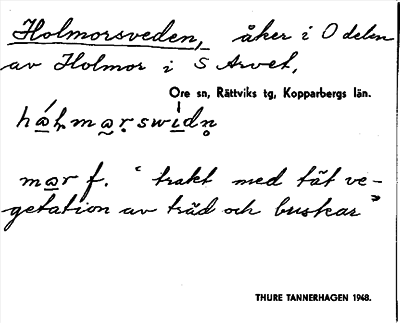 Holmorsveden, åker i O delen
av Holmor i S Arvet,
Ore sn, Rättviks tg, Kopparbergs län.
mar f. "trakt med tät ve-
getation av träd och buskar"
THURE TANNERHAGEN 1948.